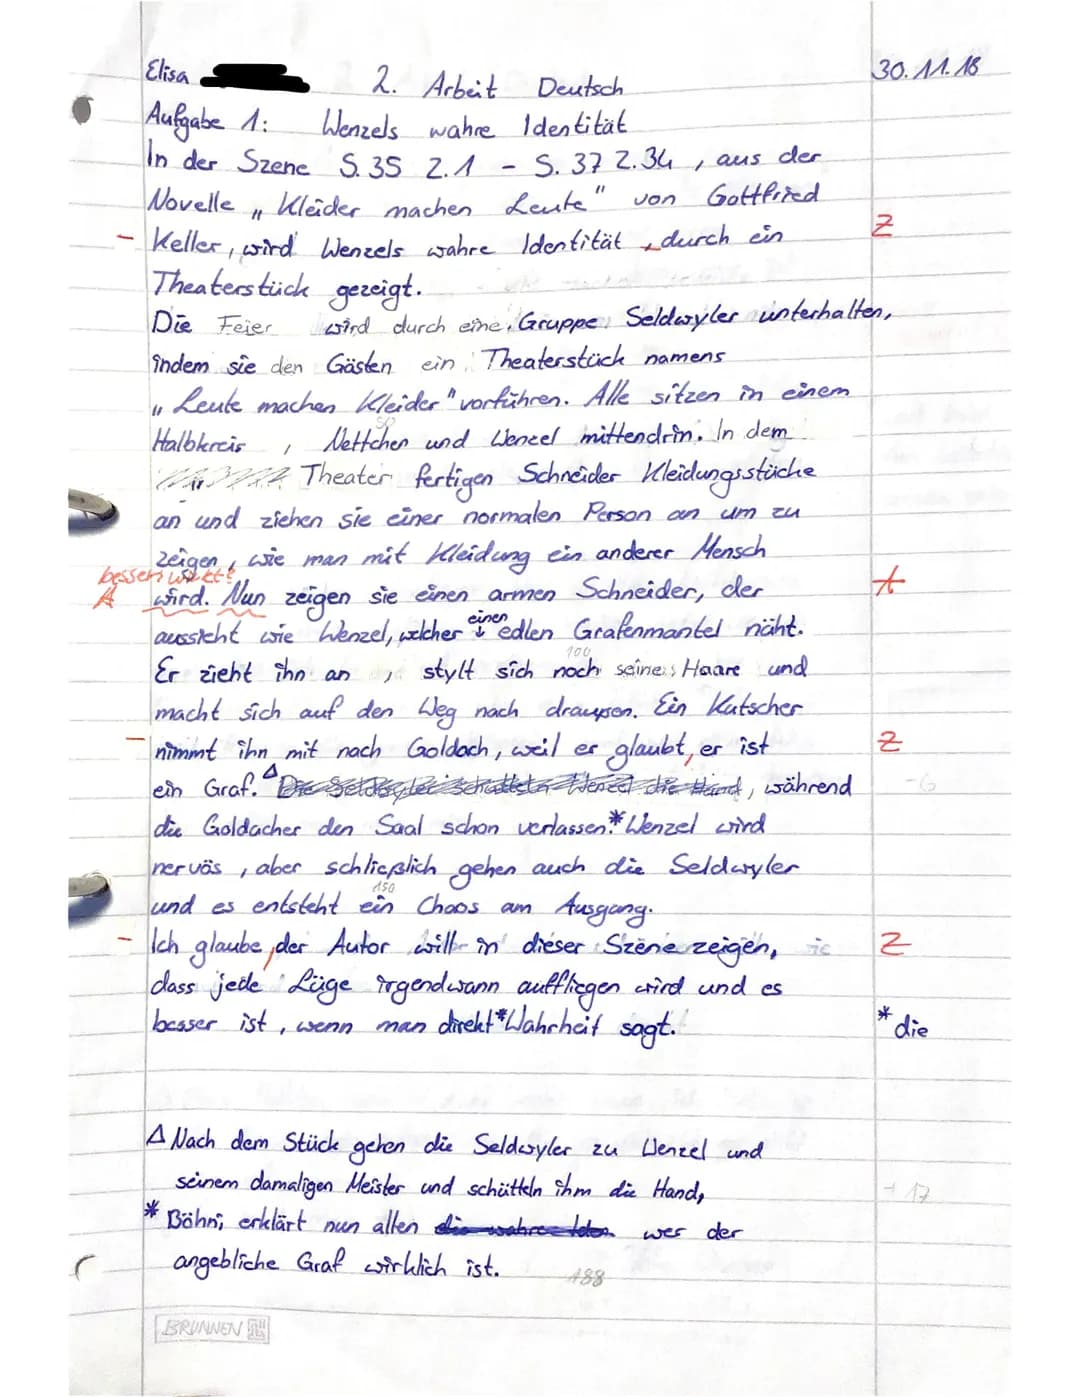 Elisa
2. Arbeit Deutsch
30.11.18
Aufgabe 1: Wenzels wahre Identität
In der Szene S. 35 Z. 1 - S. 37 Z. 34, aus der
Novelle „Kleider machen Leute" von Gottfried
- Keller, wird Wenzels wahre Identität, durch ein Z
Theaterstück gezeigt.
Die Feier wird durch eine Gruppe Seldwyler unterhalten,
indem sie den Gästen ein Theaterstück namens
„Leute machen Kleider" vorführen. Alle sitzen in einem
50
Halbkreis, Nettchen und Wenzel mittendrin. In dem
Theater fertigen Schneider Kleidungsstücke
an und ziehen sie einer normalen Person an um zu
zeigen, wie man mit Kleidung ein anderer Mensch
besser: wirkt?
A wird. Nun zeigen sie einen armen Schneider, der A
einen
aussieht wie Wenzel, welcher ↓ edlen Grafenmantel näht.
100
Er zieht ihn an, stylt sich noch seine Haare und
macht sich auf den Weg nach draußen. Ein Kutscher
- nimmt ihn mit nach Goldach, weil er glaubt, er ist Z
ein Graf. Δ Die Seldwyler schütteln Wenzel die Hand, während -6
die Goldacher den Saal schon verlassen.* Wenzel wird
nervös, aber schließlich gehen auch die Seldwyler
150
und es entsteht ein Chaos am Ausgang.
- Ich glaube, der Autor will in dieser Szene zeigen, Z
dass jede Lüge irgendwann auffliegen wird und es
besser ist, wenn man direkt * Wahrheit sagt.
* die
Δ Nach dem Stück gehen die Seldwyler zu Wenzel und
seinem damaligen Meister und schütteln ihm die Hand,
17
* Böhni, erklärt nun allen wer der
angebliche Graf wirklich ist.
188
BRUNNEN